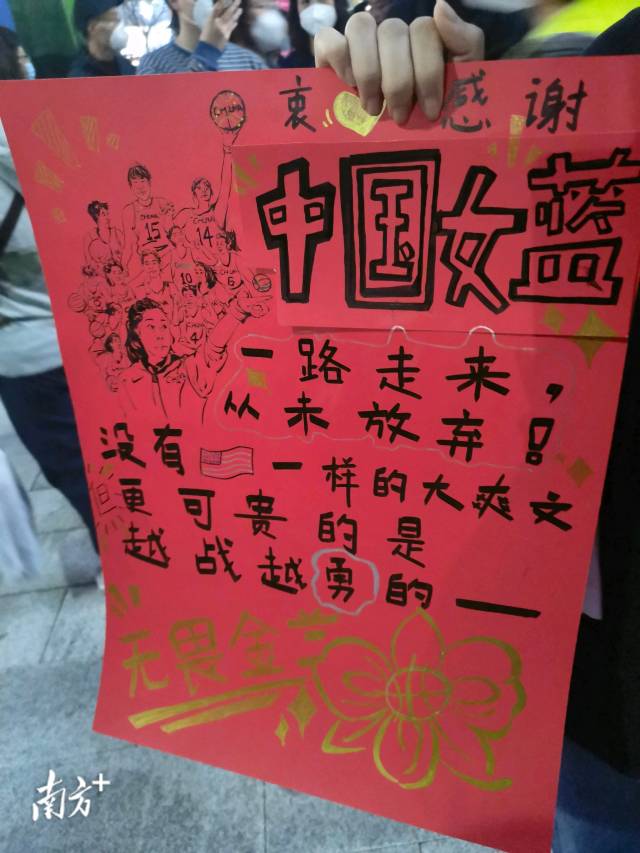 衷 感谢
中国女蓝
CHINA
CHINA
15
CHINA
14
10
6
4
一路走来,
从未放弃!
没有 一样的大爽文
更可贵的是
越战越勇的 —
无畏金兰
南方+